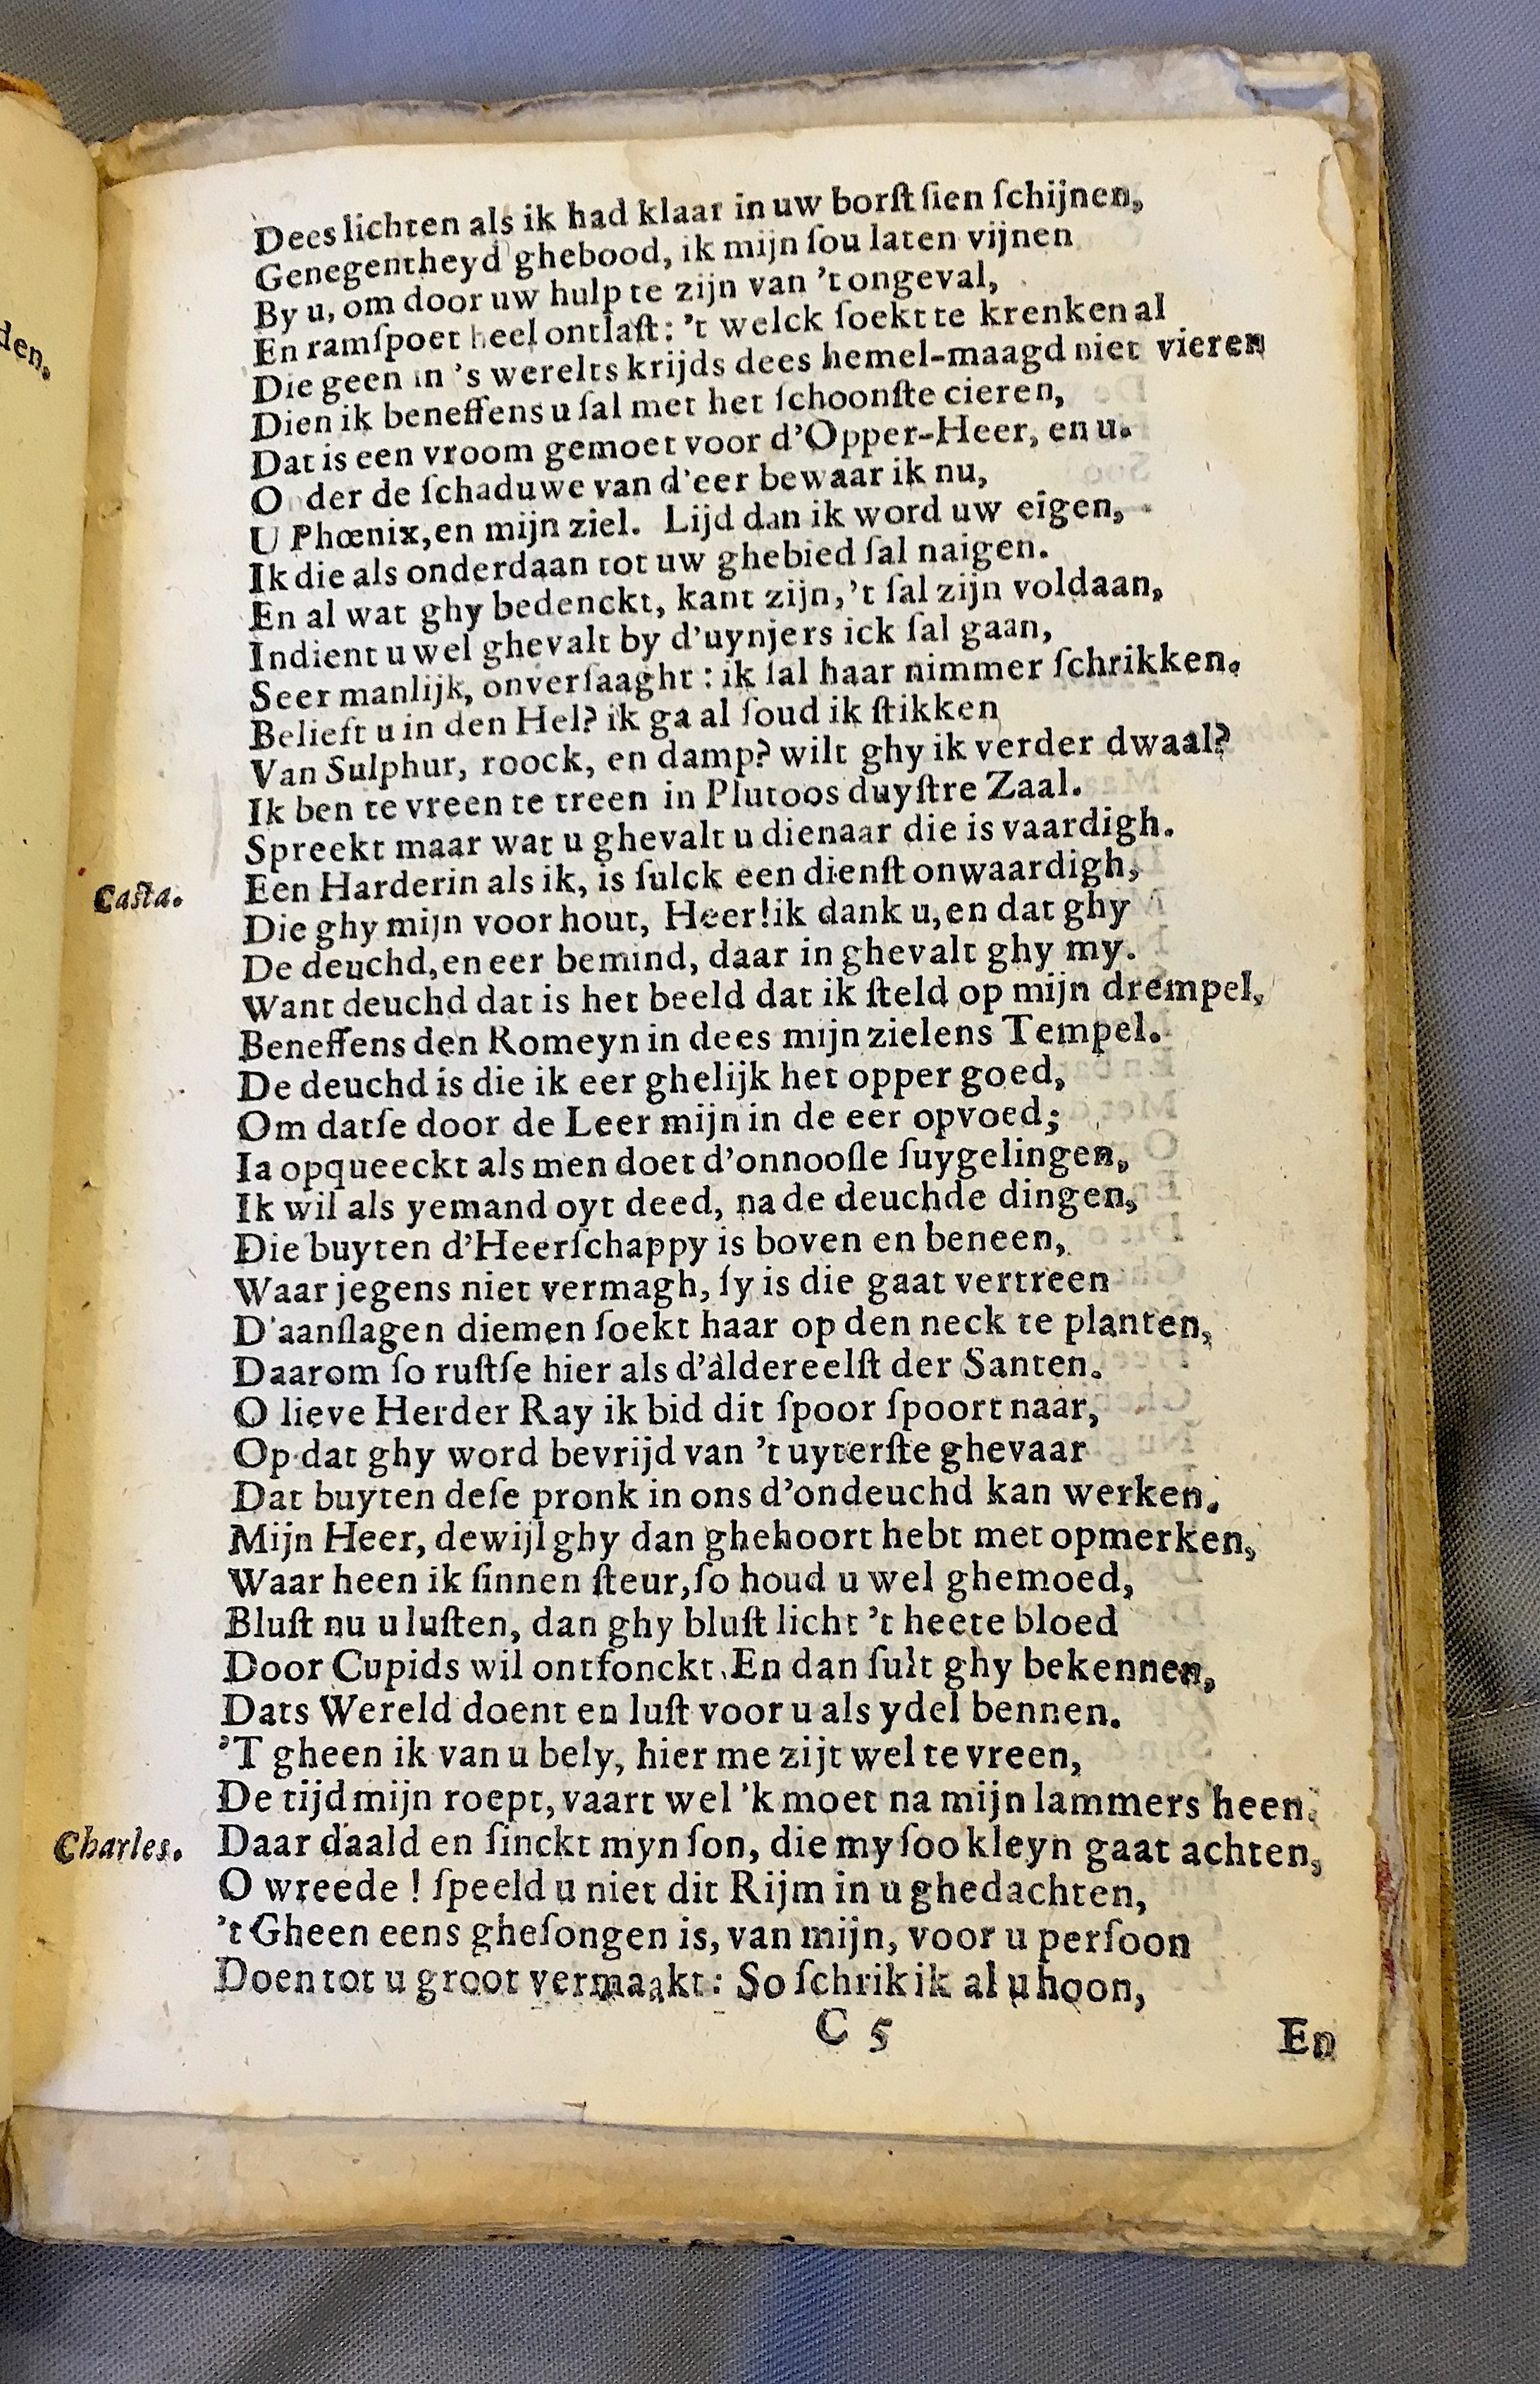 den.
Dees lichten als ik had klaar in uw borſt ſien ſchijnen,
Genegentheyd ghebood, ik mijn ſou laten vijnen
By u, om door uw hulp te zijn van 't ongeval,
En ramſpoet heel ontlaſt: 't welck ſoekt te krenken al
Die geen in 's werelts krijds dees hemel-maagd niet vieren
Dien ik beneffens u ſal met het ſchoonſte cieren,
Dat is een vroom gemoet voor d'Opper-Heer, en u.
O der de ſchaduwe van d'eer bewaar ik nu,
U Phœnix, en mijn ziel. Lijd dan ik word uw eigen,
Ik die als onderdaan tot uw ghebied ſal naigen.
En al wat ghy bedenckt, kant zijn, 't ſal zijn voldaan,
Indient u wel ghevalt by d'uynjers ick ſal gaan,
Seer manlijk, onverſaaght: ik ſal haar nimmer ſchrikken.
Belieft u in den Hel? ik ga al ſoud ik ſtikken
Van Sulphur, roock, en damp? wilt ghy ik verder dwaal?
Ik ben te vreen te treen in Plutoos duyſtre Zaal.
Spreekt maar wat u ghevalt u dienaar die is vaardigh.
Caſta. Een Harderin als ik, is ſulck een dienſt onwaardigh,
Die ghy mijn voor hout, Heer! ik dank u, en dat ghy
De deuchd, en eer bemind, daar in ghevalt ghy my.
Want deuchd dat is het beeld dat ik ſteld op mijn drempel,
Beneffens den Romeyn in dees mijn zielens Tempel.
De deuchd is die ik eer ghelijk het opper goed,
Om datſe door de Leer mijn in de eer opvoed;
Ia opqueeckt als men doet d'onnooſle ſuygelingen,
Ik wil als yemand oyt deed, na de deuchde dingen,
Die buyten d'Heerſchappy is boven en beneen,
Waar jegens niet vermagh, ſy is die gaat vertreen
D'aanſlagen diemen ſoekt haar op den neck te planten,
Daarom ſo ruſtſe hier als d'àldereelſt der Santen.
O lieve Herder Ray ik bid dit ſpoor ſpoort naar,
Op dat ghy word bevrijd van 't uyterſte ghevaar
Dat buyten deſe pronk in ons d'ondeuchd kan werken.
Mijn Heer, dewijl ghy dan ghehoort hebt met opmerken,
Waar heen ik ſinnen ſteur, ſo houd u wel ghemoed,
Bluſt nu u luſten, dan ghy bluſt licht 't heete bloed
Door Cupids wil ontfonckt. En dan ſult ghy bekennen,
Dats Wereld doent en luſt voor u als ydel bennen.
'T gheen ik van u bely, hier me zijt wel te vreen,
De tijd mijn roept, vaart wel 'k moet na mijn lammers heen.
Charles. Daar daald en ſinckt myn ſon, die my ſoo kleyn gaat achten,
O wreede! ſpeeld u niet dit Rijm in u ghedachten,
't Gheen eens gheſongen is, van mijn, voor u perſoon
Doen tot u groot vermaakt: So ſchrik ik al u hoon,
C 5
En